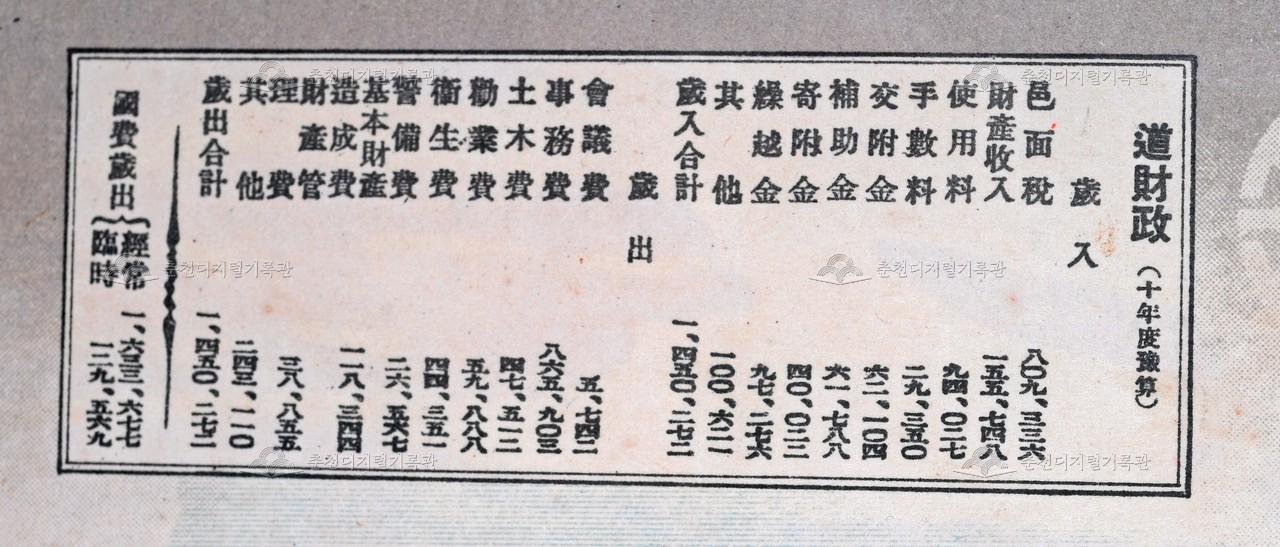 道財政(十年度豫算)
歲入
邑面稅 八〇九、三三六
財產收入 一五五、七四八
使用料 九四、〇二七
手數料 二九、三五〇
交附金 六二、一〇四
補助金 六一、七八八
寄附金 四〇、〇二二
繰越金 九七、二七六
其他 一〇〇、六二一
歲入合計 一、四五〇、二七二
歲出
會議費 五、七四二
事務費 八六五、九〇三
土木費 四七、五一二
勸業費 五九、八八八
衞生費 四四、三五一
警備費 二六、五六七
基本財產
造成費 一一八、三四四
財產管
理費 三八、八五五
其他 二四三、一一〇
歲出合計 一、四五〇、二七二
國費歲出{經常 一、六三三、六七七
臨時 一二九、五六九
춘천디지털기록관
춘천디지털기록관
춘천디지털기록관
춘천디지털기록관
춘천디지털기록관
춘천디지털기록관